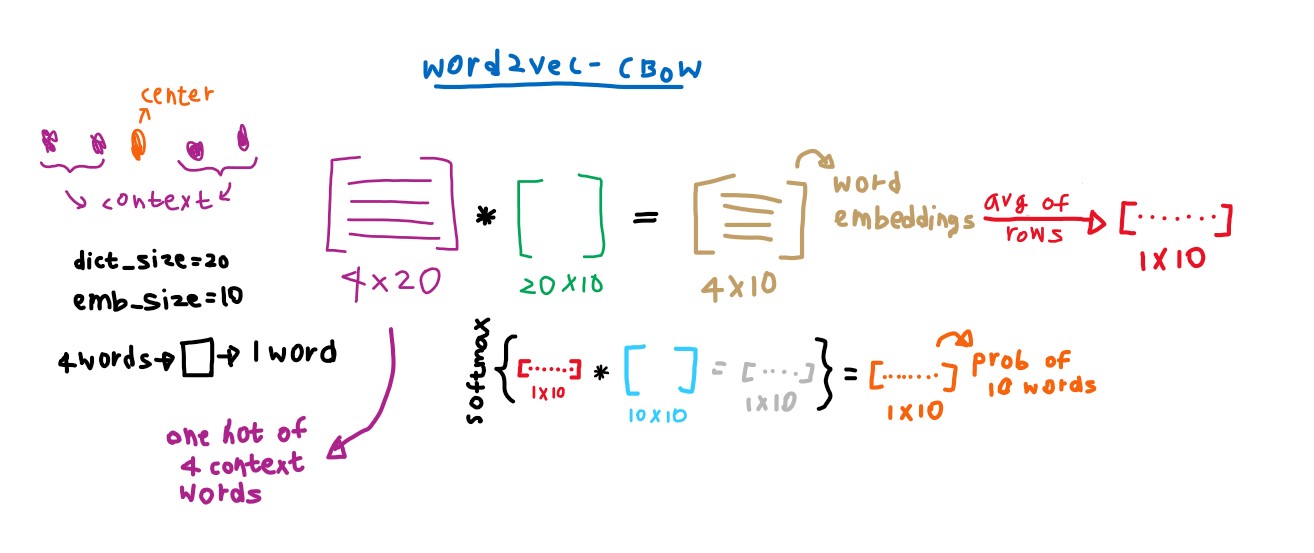 word2vec - CBOW
center
context
dict_size=20
emb_size=10
4 words → □ → 1 word
[ ] * [ ] = [ ]
4x20
20x10
4x10
word
embeddings
avg of
rows
[.......]
1x10
one hot of
4 context
words
softmax { [......] * [ ] = [....] } = [.......]
1x10
10x10
1x10
1x10
prob of
10 words